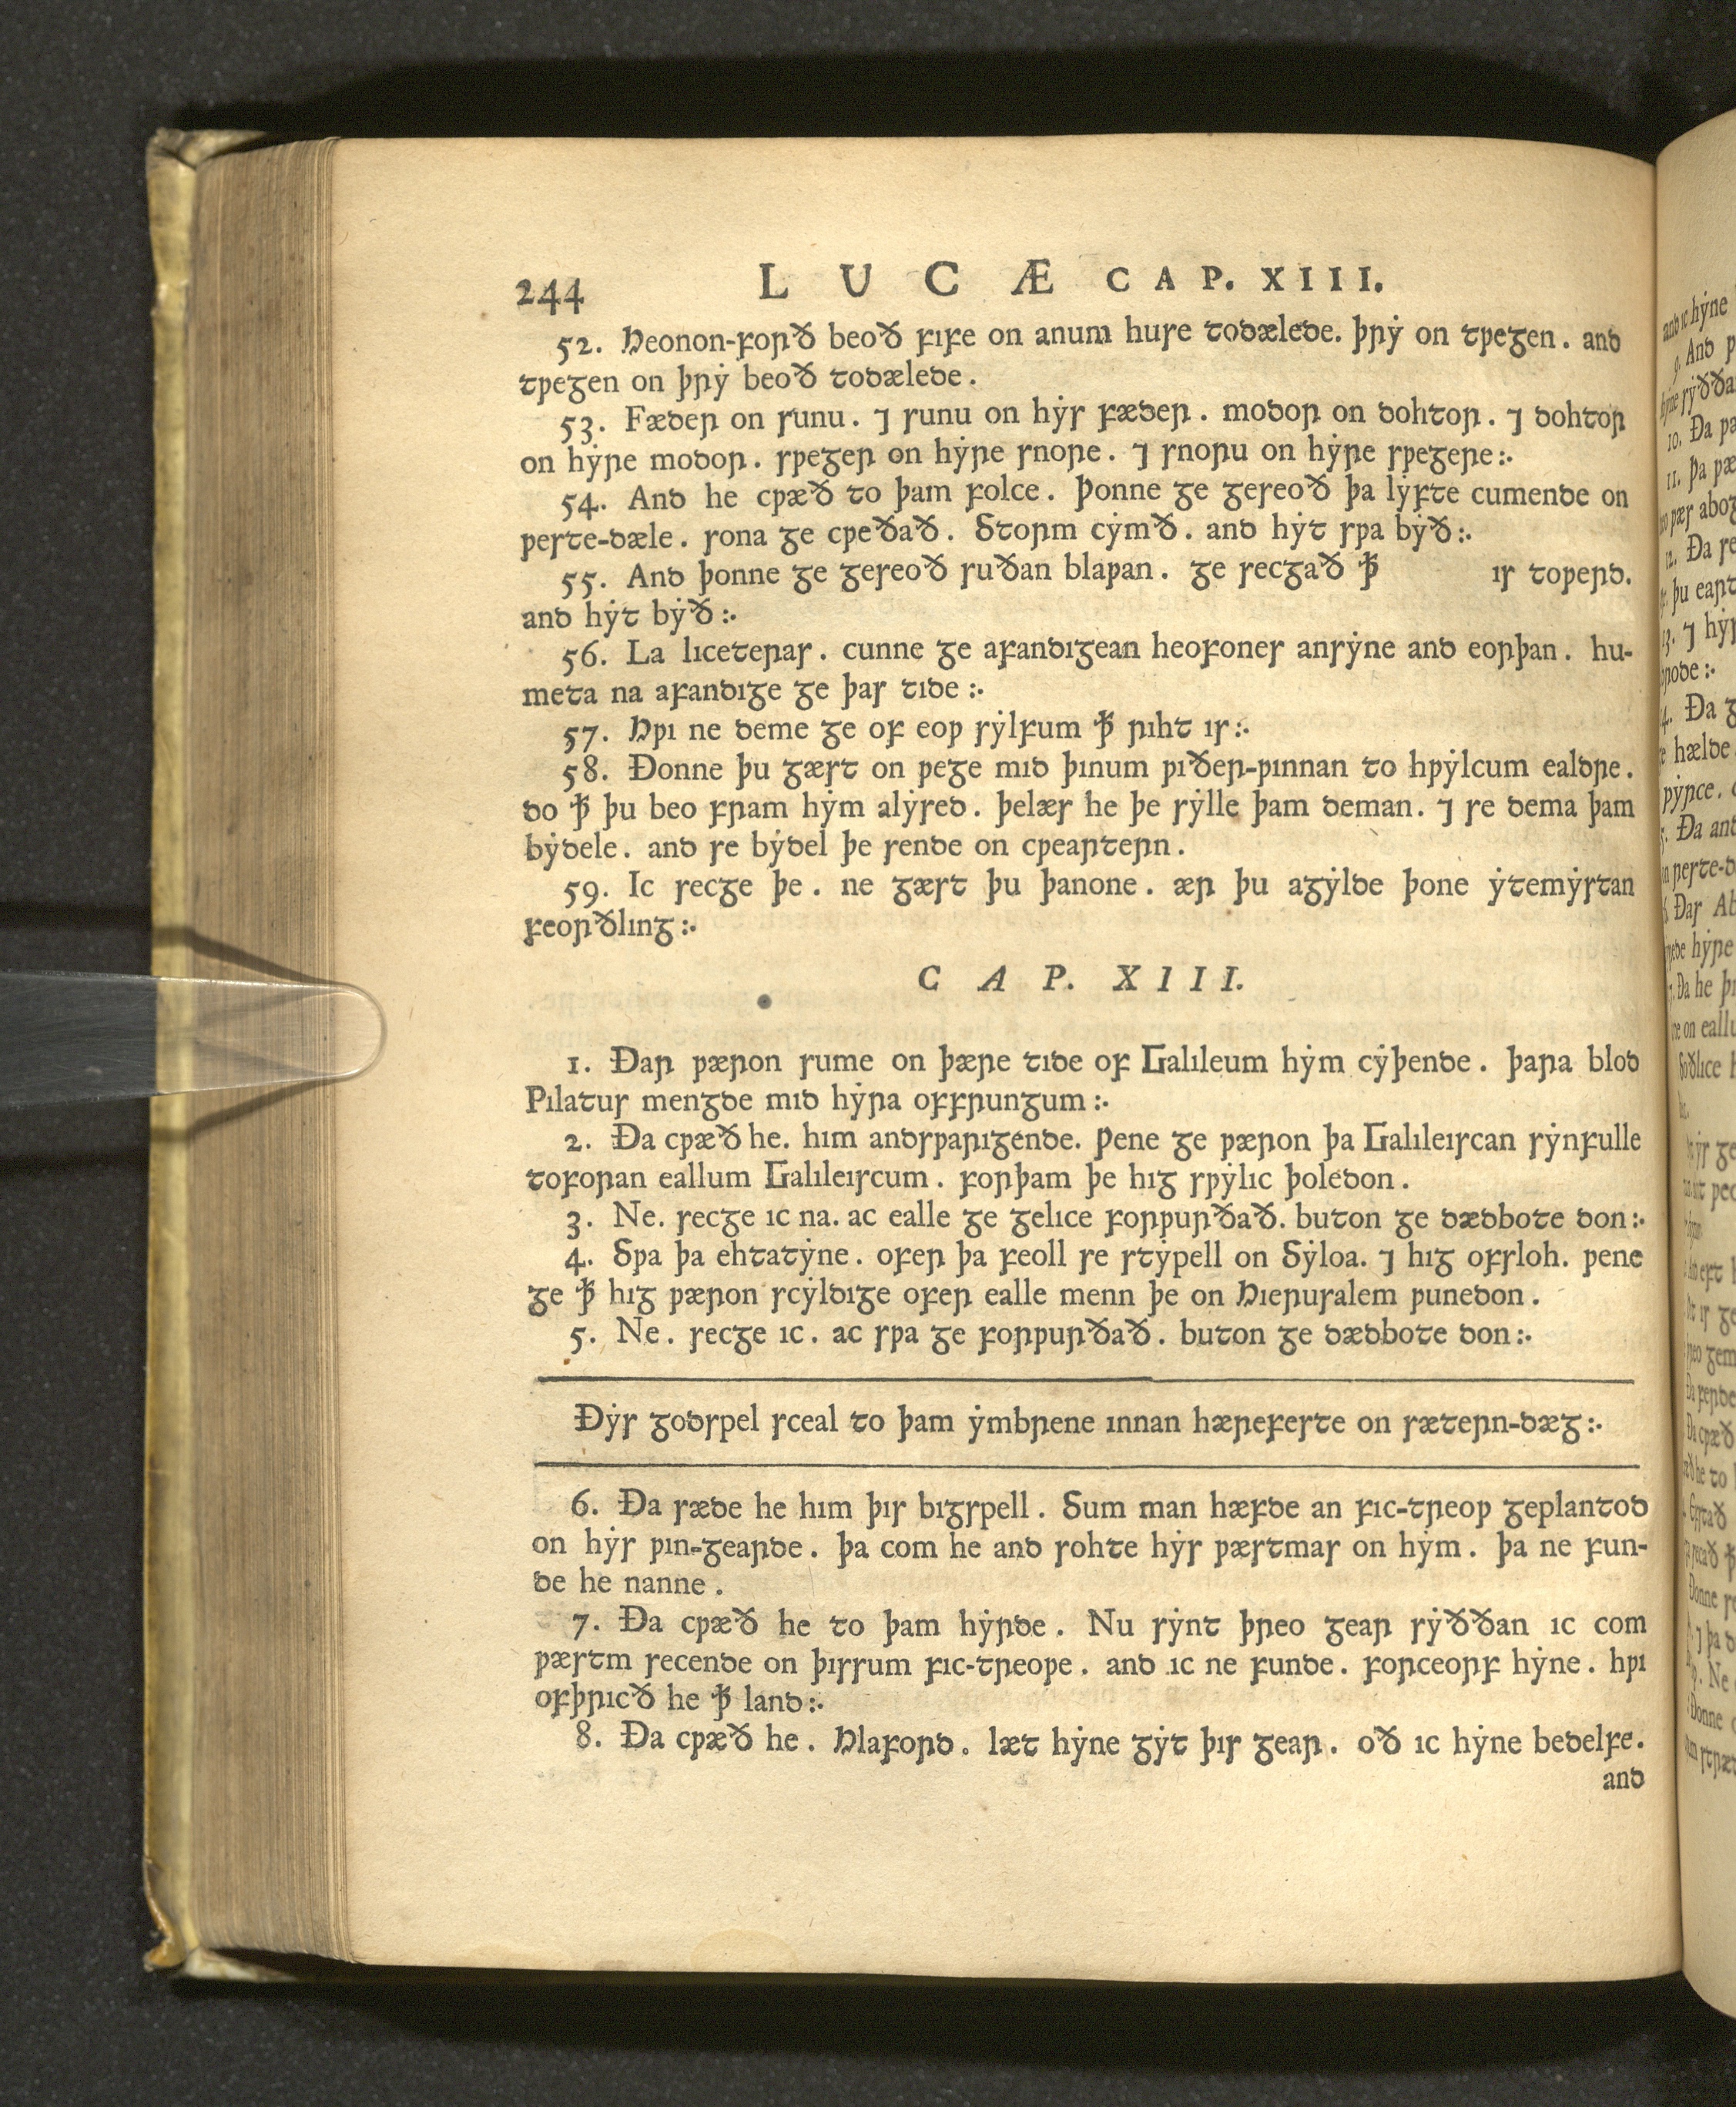 244 LUCÆ CAP. XIII.
52. Heonon-forð beoð fife on anum huse todælede. þrẏ on tƿegen. and
tƿegen on þrẏ beoð todælede.
53. Fæder on sunu. ⁊ sunu on hẏs fæder. modor on dohtor. ⁊ dohtor
on hẏre modor. sƿeger on hẏre snore. ⁊ snoru on hẏre sƿegere:.
54. And he cƿæð to þam folce. Þonne ge geseoð þa lẏfte cumende on
ƿeste-dæle. sona ge cƿeðað. Storm cẏmð. and hẏt sƿa bẏð:.
55. And þonne ge geseoð suðan blaƿan. ge secgað ꝥ is toƿerd.
and hẏt bẏð:.
56. La liceteras. cunne ge afandigean heofones ansẏne and eorþan. hu-
meta na afandige ge þas tide:.
57. Hƿi ne deme ge of eoƿ sẏlfum ꝥ riht is:.
58. Ðonne þu gæst on ƿege mid þinum ƿiðer-ƿinnan to hƿẏlcum ealdre.
do ꝥ þu beo fram hẏm alẏsed. þelæs he þe sẏlle þam deman. ⁊ se dema þam
bẏdele. and se bẏdel þe sende on cƿeartern.
59. Ic secge þe. ne gæst þu þanone. ær þu agẏlde þone ẏtemẏstan
feorðling:.
CAP. XIII.
1. Ðar ƿæron sume on þære tide of Galileum hẏm cẏþende. þara blod
Pilatus mengde mid hẏra offrungum:.
2. Ða cƿæð he. him andsƿarigende. Ƿene ge ƿæron þa Galileiscan sẏnfulle
toforan eallum Galileiscum. forþam þe hig sƿẏlic þoledon.
3. Ne. secge ic na. ac ealle ge gelice forƿurðað. buton ge dædbote don:.
4. Sƿa þa ehtatẏne. ofer þa feoll se stẏpell on Sẏloa. ⁊ hig ofsloh. ƿene
ge ꝥ hig ƿæron scẏldige ofer ealle menn þe on Hierusalem ƿunedon.
5. Ne. secge ic. ac sƿa ge forƿurðað. buton ge dædbote don:.
Ðẏs godspel sceal to þam ẏmbrene innan hærefeste on sætern-dæg:.
6. Ða sæde he him þis bigspell. Sum man hæfde an fic-treoƿ geplantod
on hẏs ƿin-gearde. þa com he and sohte hẏs ƿæstmas on hẏm. þa ne fun-
de he nanne.
7. Ða cƿæð he to þam hẏrde. Nu sẏnt þreo gear sẏððan ic com
ƿæstm secende on þissum fic-treoƿe. and ic ne funde. forceorf hẏne. hƿi
ofþricð he ꝥ land:.
8. Ða cƿæð he. Hlaford. læt hẏne gẏt þis gear. oð ic hẏne bedelfe.
and